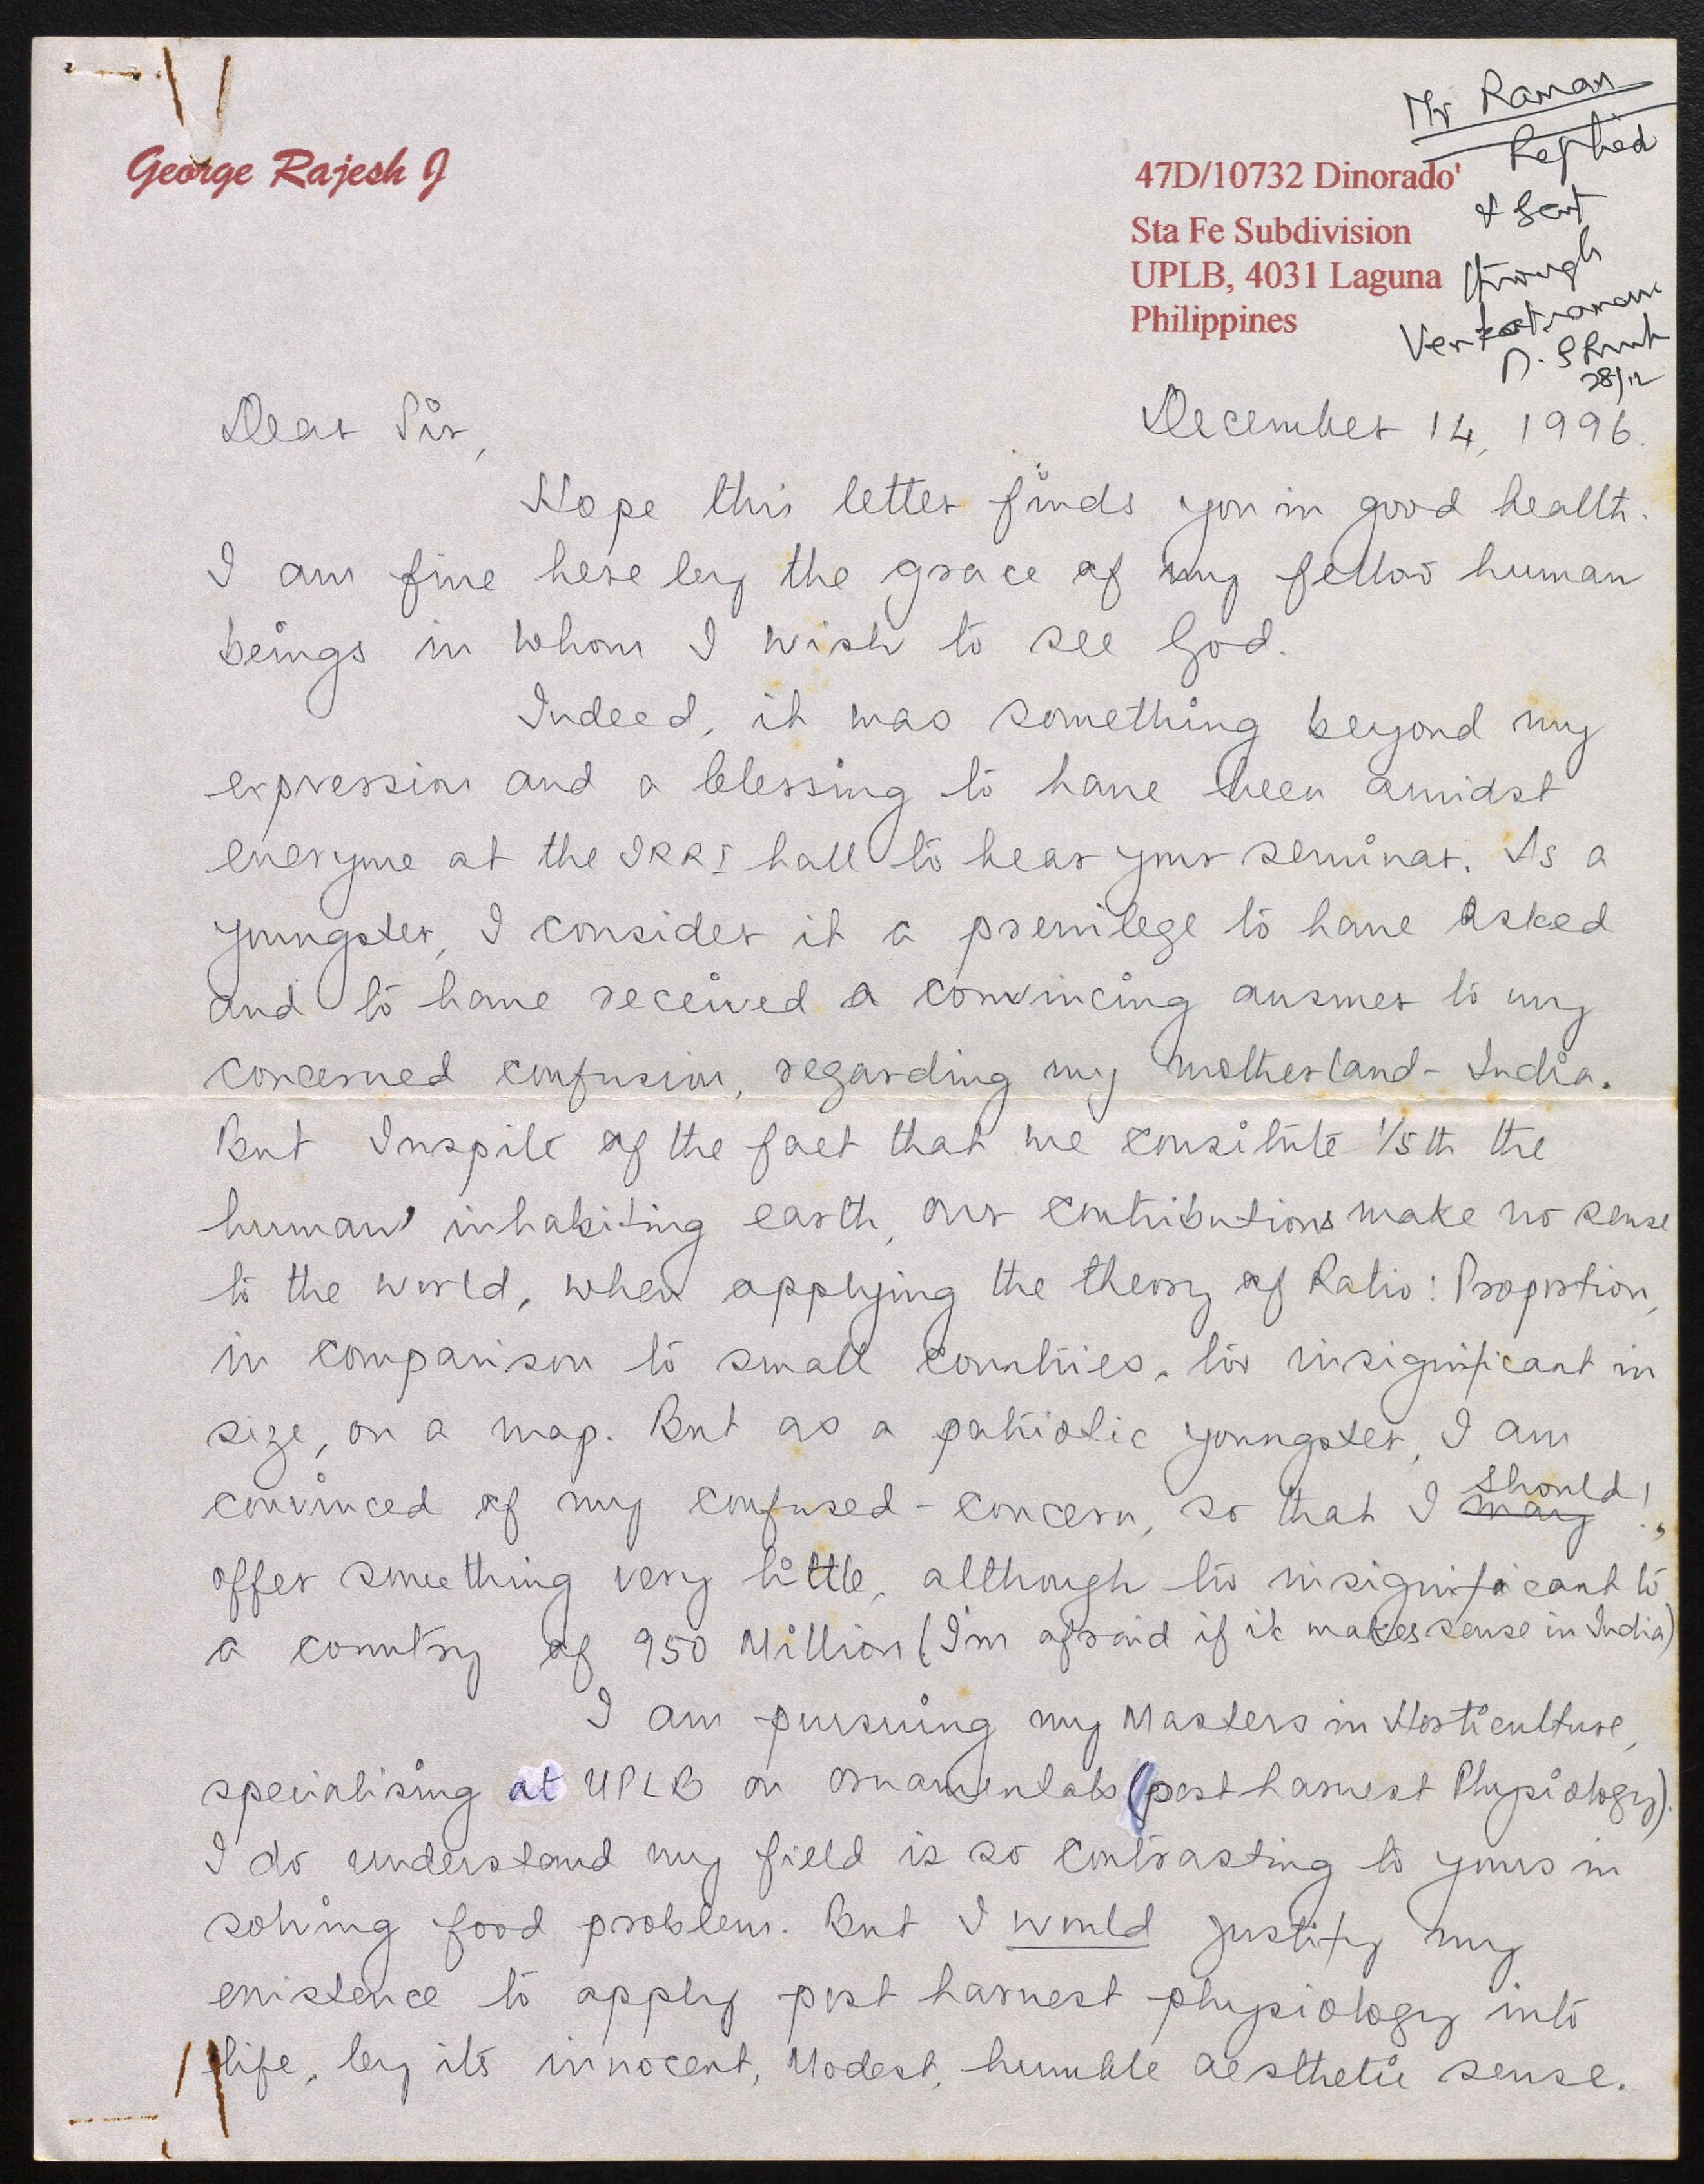 George Rajesh J
47D/10732 Dinorado'
Sta Fe Subdivision
UPLB, 4031 Laguna
Philippines
Mr Raman
Replied
& sent
through
Venkatraman
28/12
Dear Sir,
December 14, 1996.
Hope this letter finds you in good health.
I am fine here by the grace of my fellow human
beings in whom I wish to see God.
Indeed, it was something beyond my
expression and a blessing to have been amidst
everyone at the IRRI hall to hear your seminar. As a
youngster, I consider it a previlege to have asked
and to have received a convincing answer to my
concerned confusion, regarding my motherland - India.
But Inspite of the fact that we consitute 1/5th the
human' inhabiting earth, our contributions make no sense
to the world, when applying the theory of Ratio: Proportion,
in comparison to small countries, too insignificant in
size, on a map. But as a patriotic youngster, I am
convinced of my confused - concern, so that I may should!,
offer something very little, although too insignificant to
a country of 950 Million (I'm afraid if it makes sense in India)
I am pursuing my Masters in Horticulture,
specialising at UPLB on ornamentals (post harvest Physiology).
I do understand my field is so contrasting to yours in
solving food problem. But I would justify my
existence to apply post harvest physiology into
life, by its innocent, Modest, humble aesthetic sense.